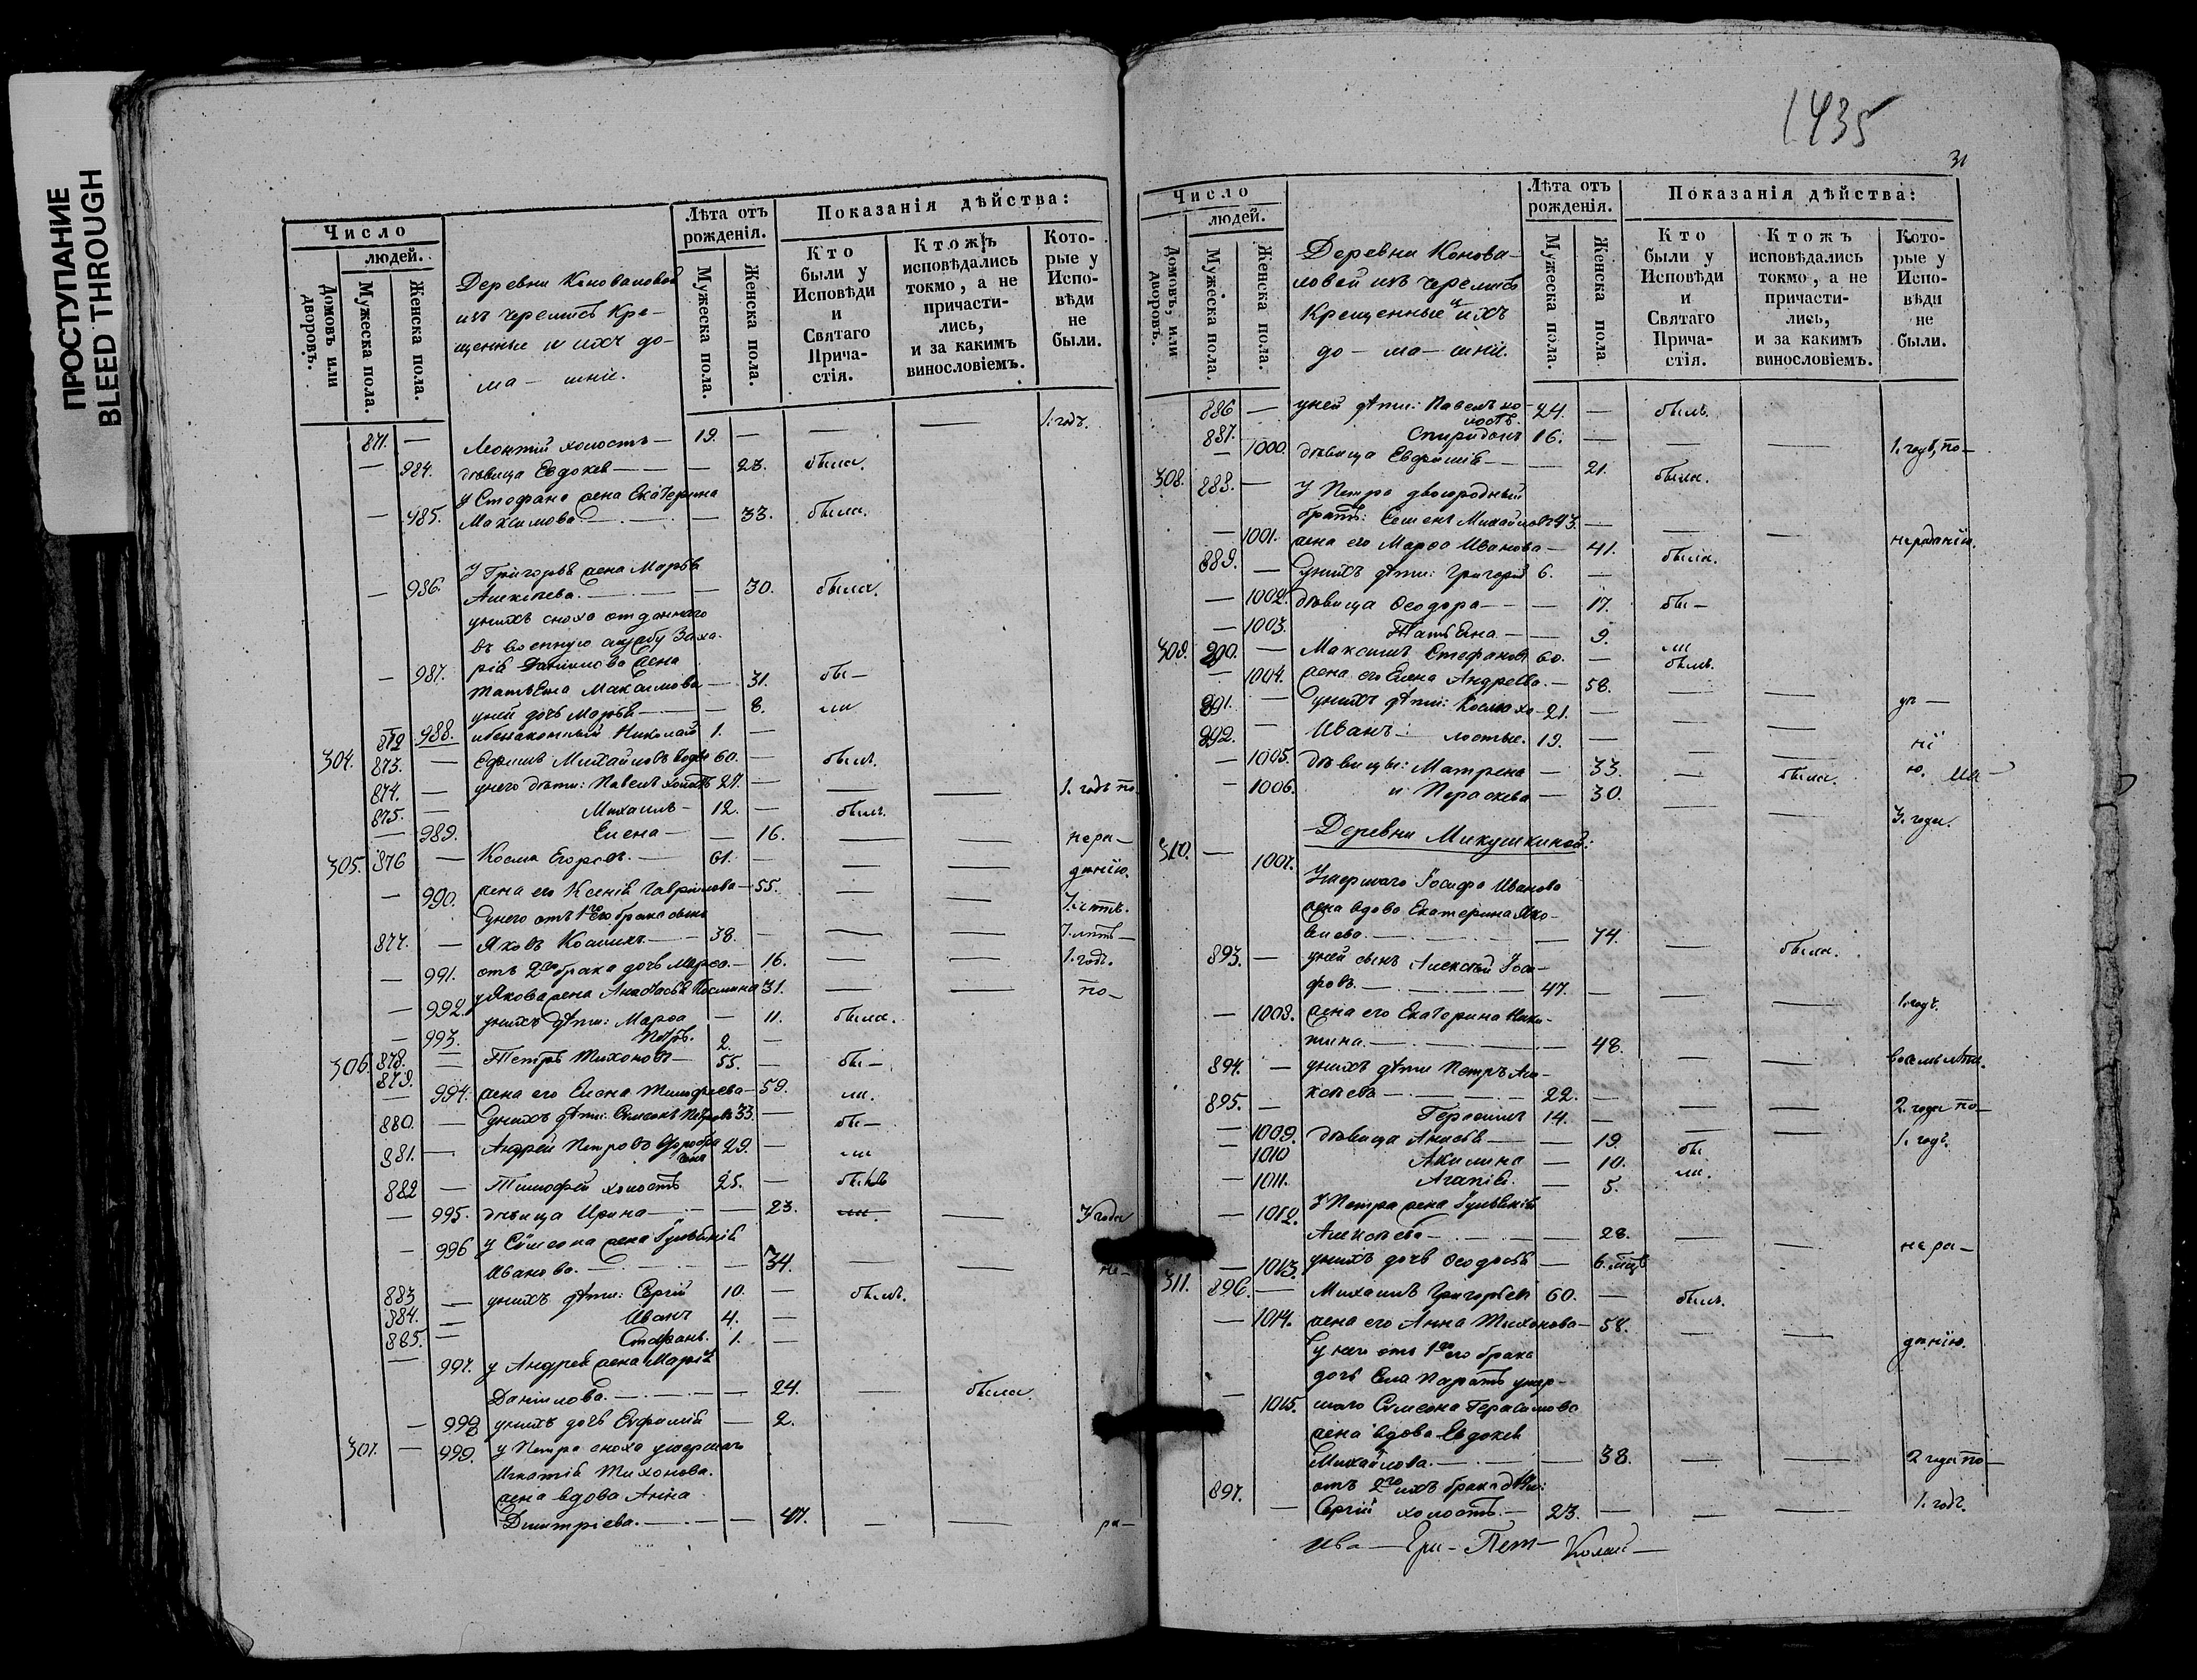 ПРОСТУПАНИЕ
BLEED THROUGH
Число
людей.
Домовъ или дворовъ.
Мужеска пола.
Женска пола.
Деревни Коноваловой
изъ черемисъ Кре-
щенные и ихъ до-
ма - шніе.
Лѣта отъ рожденія.
Мужеска пола.
Женска пола.
Показанія дѣйства:
Кто были у Исповѣди и Святаго Прича-стія.
Ктожъ исповѣдались токмо, а не причасти-лись, и за какимъ винословіемъ.
Кото-рые у Испо-вѣди не были.
871. — Леонтій холостъ — 19. — — — 1. годъ.
— 984. дѣвица Евдокея — — 23. была.
У Стефана жена Екатерина
— 985. Максимова — — 33. была.
У Григорья жена Марья
— 986. Алексѣева. — — 30. была.
у нихъ сноха отданнаго
въ военную службу Заха-
рія Данилова жена
— 987. Татьяна Максимова — 31. бы —
988. у ней дочь Марья — — 8. ли
872 незаконный Николай 1. —
304. 873. — Ефимъ Михайловъ вдовъ 60. — былъ.
874. — у него дѣти: Павелъ холостъ 27. — — — 1. годъ по
875. — Михаилъ — 12. — былъ.
— 989. Елена — — 16. — — нера —
305. 876 — Косма Егоровъ. — 61. — — — дѣнію.
— 990. жена его Ксенія Гаврилова — 55. — — 7. лѣтъ.
у него отъ 1го его брака сынъ
877. — Яковъ Космихъ — 38. — — — 7. лѣтъ —
— 991. отъ 2го брака дочь Марѳа. — 16. — — 1. годъ.
— 992. у Якова жена Анастасья Космина 31. — — по —
— 993. у нихъ дѣти: Марѳа — 11. была.
878. — Петръ. 2. —
306. 879. — Петръ Тихоновъ — 55. — бы —
— 994. жена его Елена Тимофеева — 59. ли.
880. — у нихъ дѣти: Симеонъ Петровъ 33. — бы —
881. — Андрей Петровъ 29. — ли
882 — Тимофей холостъ 25. — былъ
— 995. дѣвица Ирина — — 23. — 3 года
— 996 у Симеона жена Гулянія
Иванова. — — 34. — — не —
883 — у нихъ дѣти: Сергій 10. — былъ.
884. — Иванъ 4. —
885. — Стефанъ. 1. —
— 997. у Андрея жена Марія
Данилова. — — 24. — была.
— 998 у нихъ дочь Евфимія — 2.
307. — 999. у Петра сноха умершаго
Игнатія Тихонова.
жена вдова Анна
Дмитріева. — — 47. — — ра —
1435
31
Число
людей.
Домовъ, или дворовъ.
Мужеска пола.
Женска пола.
Деревни Конова-
ловой изъ черемисъ
Крещенные и ихъ
до - ма - шніе.
Лѣта отъ рожденія.
Мужеска пола.
Женска пола
Показанія дѣйства:
Кто были у Исповѣди и Святаго Прича-стія.
Ктожъ исповѣдались токмо, а не причасти-лись, и за какимъ винословіемъ.
Кото-рые у Испо-вѣди не были.
886 — у ней дѣти: Павелъ хо-
лостъ. 24. — былъ.
887. — Спиридонъ 16. — — — 1. годъ, по —
— 1000. дѣвица Евфимія — — 21. была.
308. 888. — У Петра двоюродный
братъ: Семенъ Михайловъ 43. — — — нерадѣнію.
— 1001. жена его Марѳа Иванова — 41. была.
889. — у нихъ дѣти: Григорій 6. —
— 1002. дѣвица Ѳеодора — — 17. бы —
— 1003. Татьяна — — 9. ли
309. 890. — Максимъ Стефановъ 60. — былъ.
— 1004. жена его Елена Андреева. — 58. — — ра —
891. — у нихъ дѣти: Косма хо- 21. —
892. — Иванъ: лостые. 19. —
— 1005. дѣвицы: Матрена — 33. — была.
— 1006. и Параскева — 30. — — 3. года.
Деревни Микушкиной:
310. — 1007. Умершаго Іосифа Иванова
жена вдова Екатерина Яко-
влева. — — 74. — была.
893. — у ней сынъ Алексѣй Іоси-
фовъ. — 47. — — — 1. годъ.
— 1008. жена его Екатерина Ники-
тина. — — 48. — — восемь лѣтъ.
894. — у нихъ дѣти Петръ Але-
ксѣевъ — 22. — — — 2. года по —
895. — Герасимъ 14. — — — 1. годъ.
— 1009. дѣвица Анисья — — 19. бы
— 1010 Акилина — 10. ли.
— 1011. Агапія. — 5.
— 1012. У Петра жена Гулянія
Алексѣева — — 28. — — нера —
— 1013. у нихъ дочь Ѳеодосья — 6. мцъ
311. 896. — Михаилъ Григорьевъ 60. — былъ.
— 1014. жена его Анна Тихонова — 58. — — дѣнію.
у нея отъ 1го его брака
— 1015. шаго Симеона Герасимова
жена вдова Евдокея
Михайлова. — — 38. — — 2 года по —
897. — отъ 2го ихъ брака дѣти:
Сергій холостъ. — 23. — — — 1. годъ.